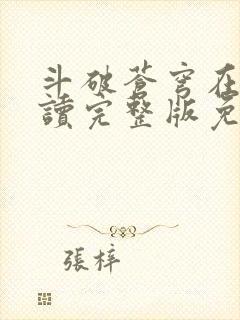 斗破蒼穹在
讀完整版免
張梓